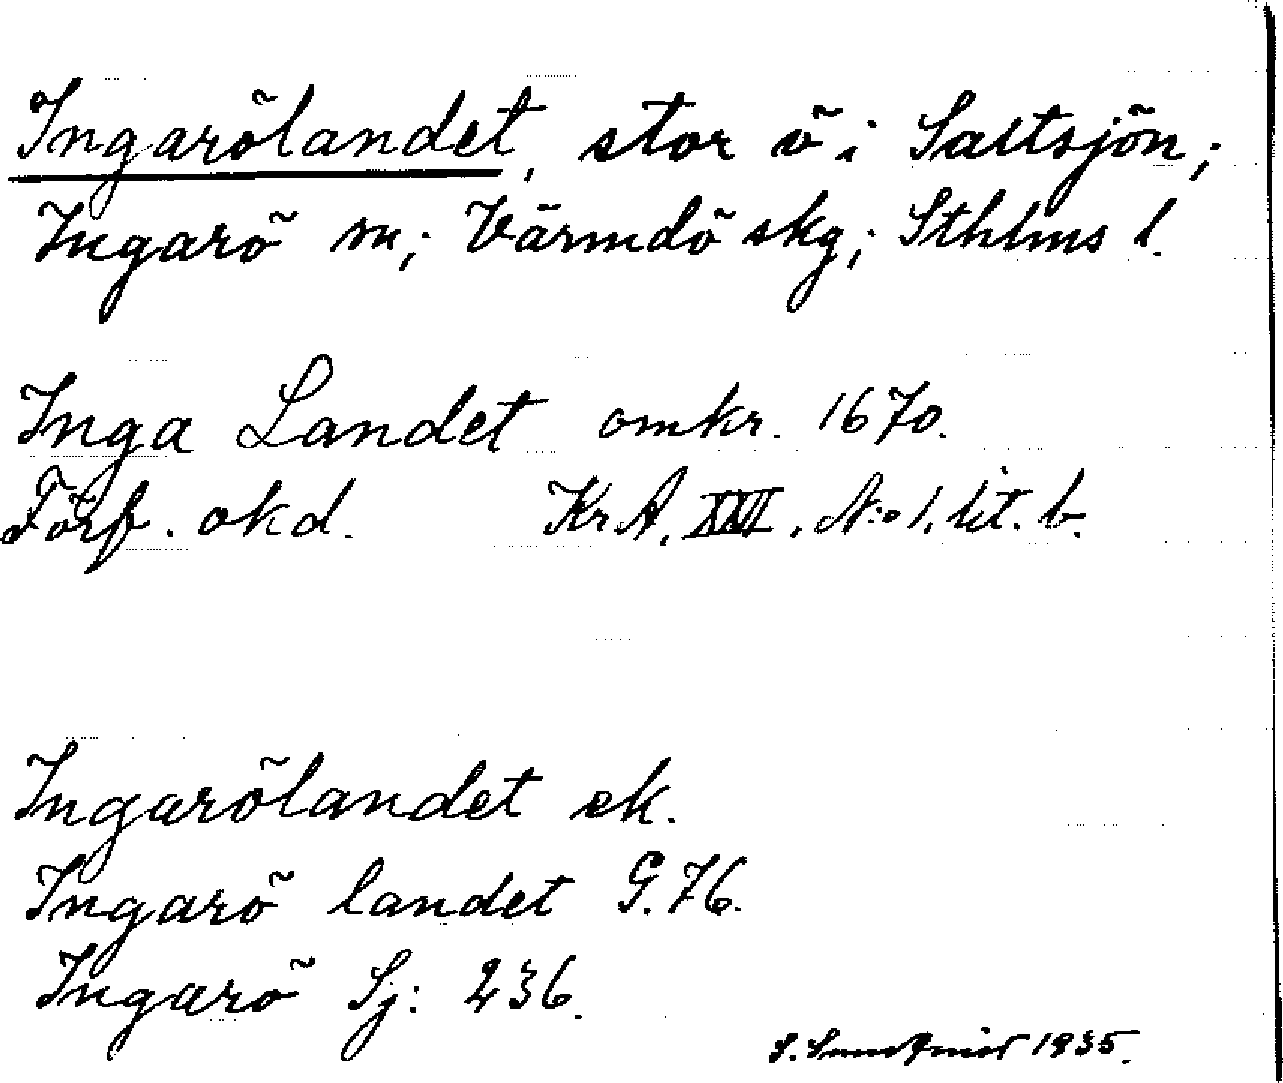 Ingarölandet, stor ö i Saltsjön;
Ingarö sn; Värmdö skg; Sthlms l.
Inga Landet omkr. 1670.
Förf. okd. Kr A, XXVI, N:o 1, lit. b.
Ingarölandet ek.
Ingarö landet G.76.
Ingarö Sj: 236.
S. 1935.